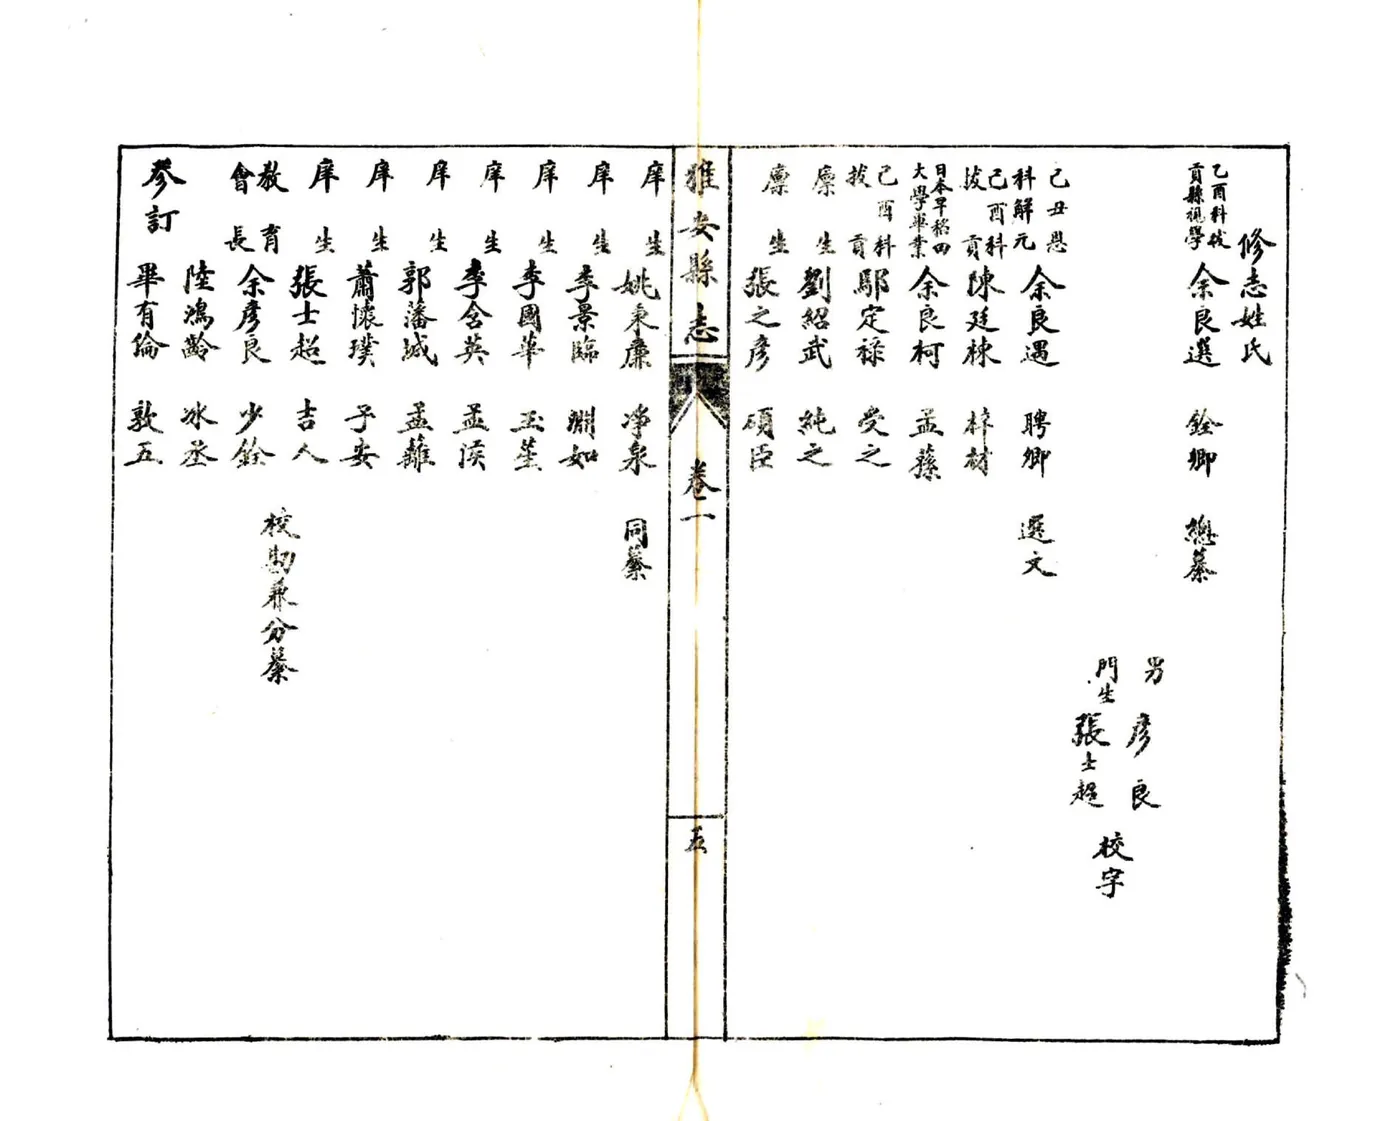 修志姓氏
乙酉科拔貢縣視學 余良選 銓卿 總纂
男 彥良
門生 張士超
校字
己丑恩科解元 余良遇 聘卿 選文
己酉科拔貢 陳廷棟 梓材
日本早稻田大學畢業 余良柯 孟蓀
己酉科拔貢 鄢定祿 受之
廩生 劉紹武 純之
廩生 張之彥 碩臣
雅安縣志 卷一 五
庠生 姚秉廉 淨泉 同纂
庠生 李景臨 淵如
庠生 李國華 玉峚
庠生 李含英 孟侯
庠生 郭藩城 孟蘺
庠生 蕭懷璞 子安
庠生 張士超 吉人
教育會長 余彥良 少銓
校勘兼分纂
陸鴻齡 冰丞
參訂 畢有倫 敦五